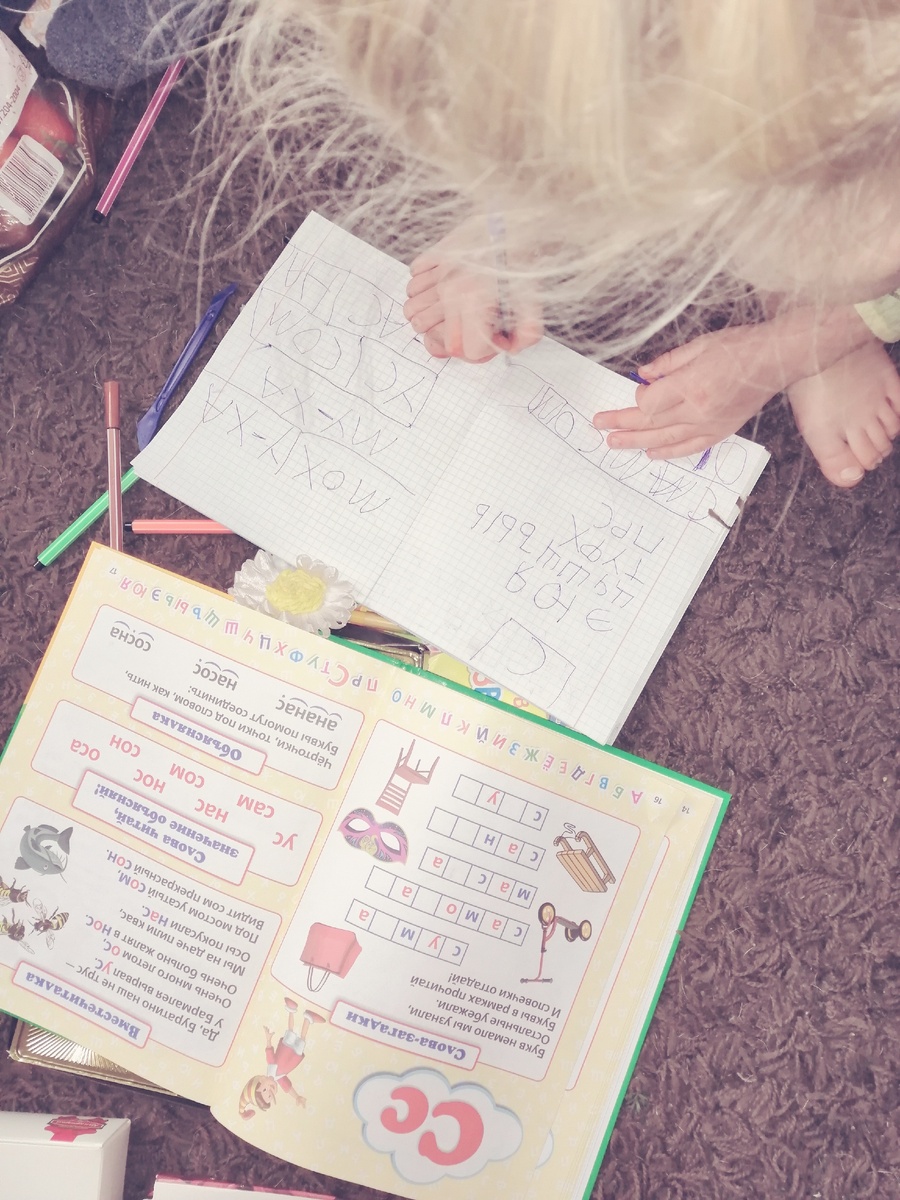 Сс
Слова-загадки
Букв немало мы узнали,
Остальные убежали.
Буквы в рамках прочитай
И словечки отгадай!
с у м а
с а м о а
м а с а
с а н
с у
14
16 А Б В Г Д Е Ё Ж З И Й К Л М Н О
Вместечиталка
Да, Буратино наш не трус –
У Бармалея вырвал ус.
Очень много летом ос,
Очень больно жалят в нос.
Мы на даче пили квас,
Осы покусали нас.
Под мостом усатый сом,
Видит сом прекрасный сон.
Слова читай,
значение объясняй!
ус сам сом сон
нас нос оса
Объяснялка
Чёрточки, точки под словом, как нить,
Буквы помогут соединить:
ананас насос сосна
П Р С Т У Ф Х Ц Ч Ш Щ Ъ Ы Ь Э Ю Я 17
С
Э Ю Я
Ц Ч Ш Щ
Т У Ф Х ЪЫЬ
П Р С
САМ СОМ
МОХ МУ-ХА
МУ-ХА
УС СОМ